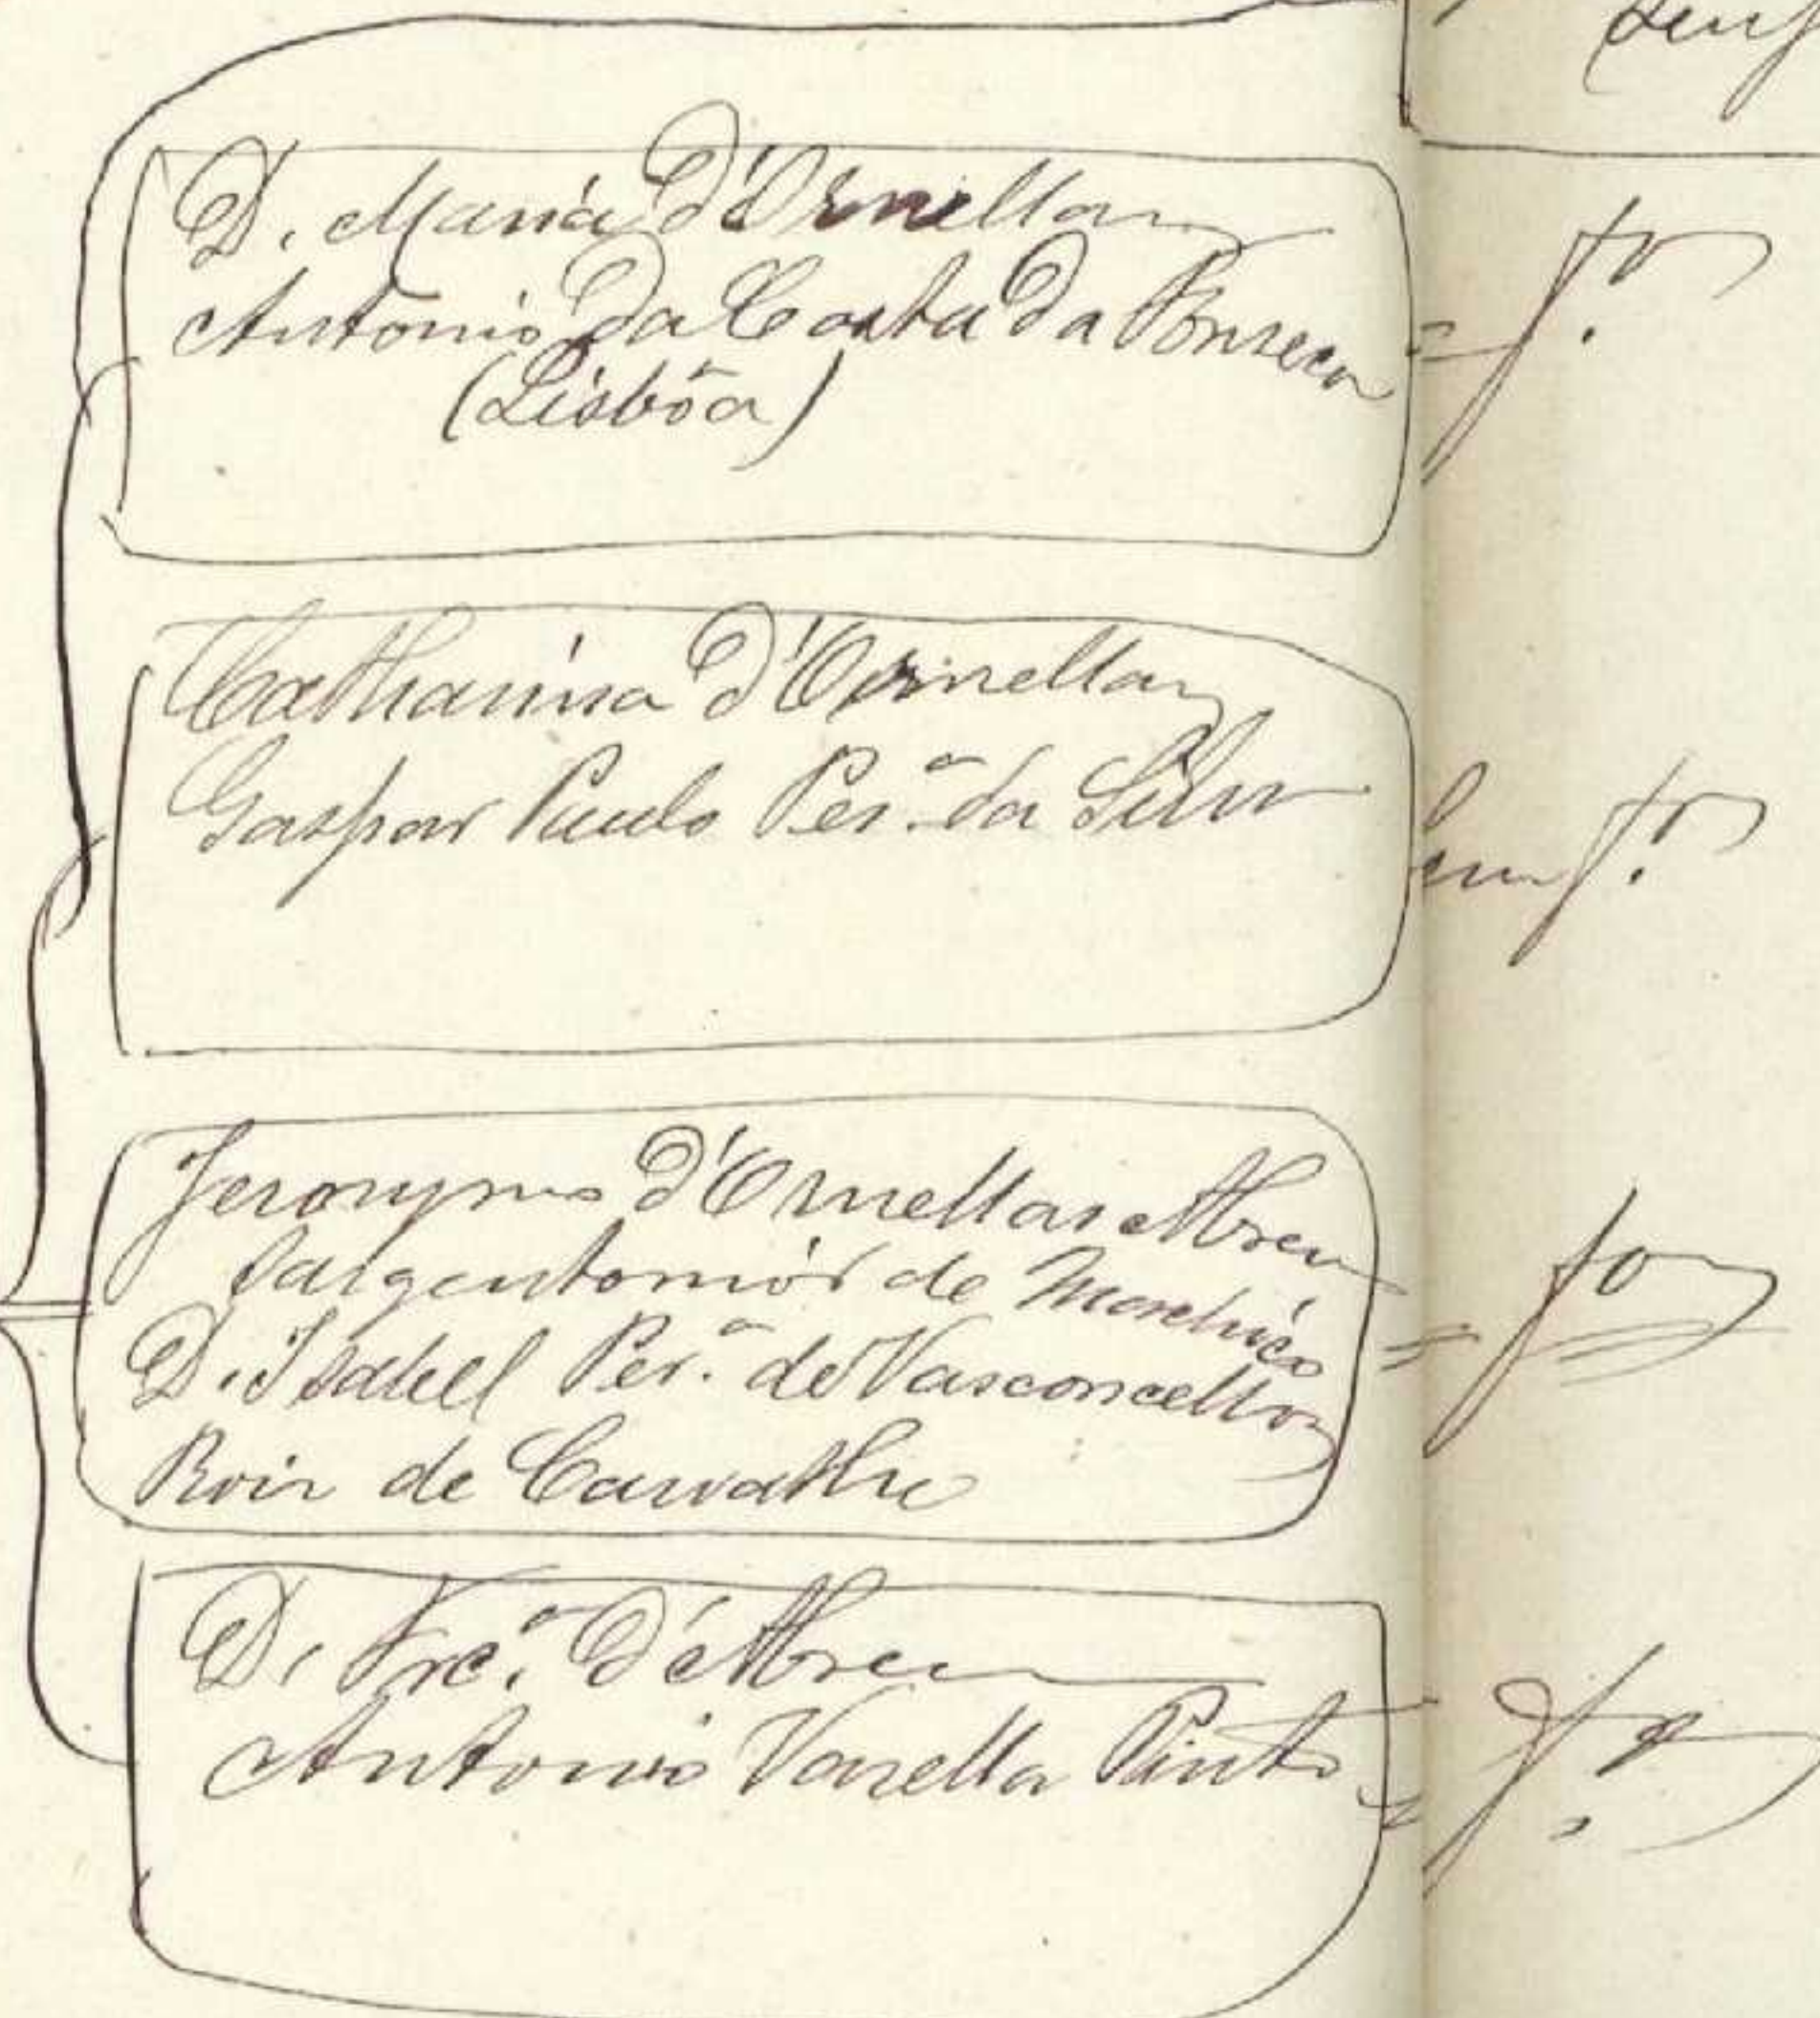 D. Maria d'Ornellas
Antonio da Costa da Fonseca
(Lisbõa)
Catharina d'Ornellas
Gaspar Paulo Per.ª da Silva
Jeronymo d'Ornellas Abreu
Sargentomór de Machico
D. Isabel Per.ª de Vasconcellos
Roiz de Carvalho
D. Frc.ª d'Abreu
Antonio Varella Pinto